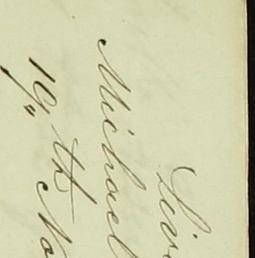 Liv
Michael
19th No